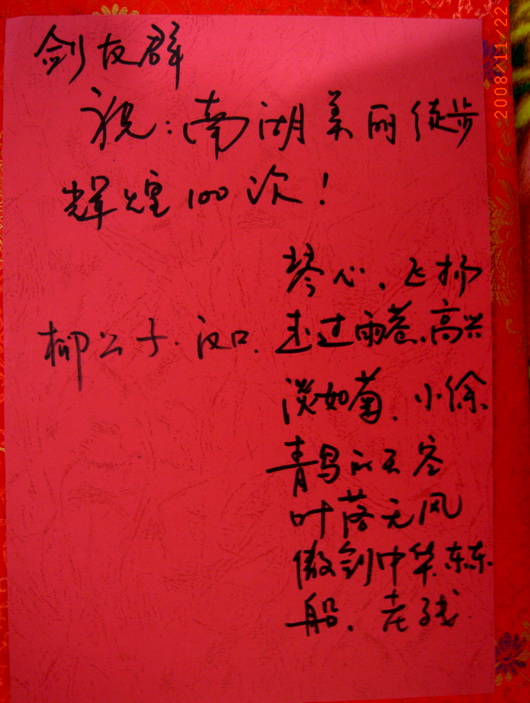 2008/11/22
剑友群
祝:南湖美丽徒步
辉煌100次!
琴心、飞扬
柳公子、汉口、走过雨巷、高兴
淡如菊、小徐
青鸟的天空
叶落无风
傲剑中华、东东
船、老残